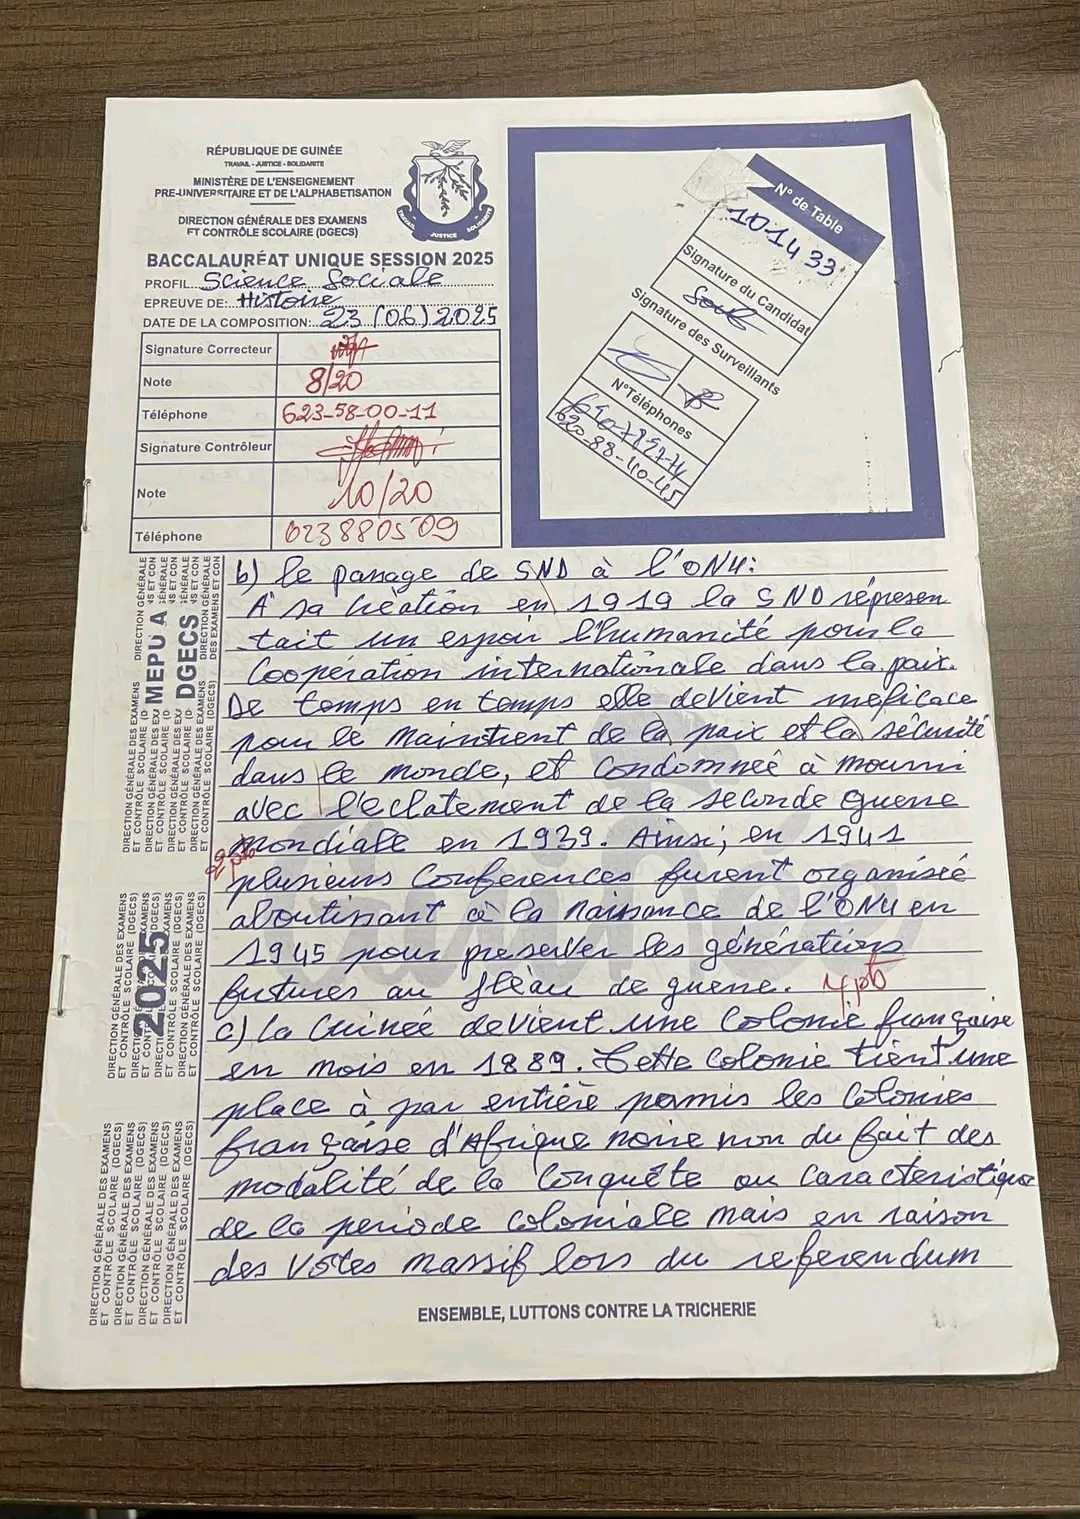 RÉPUBLIQUE DE GUINÉE
TRAVAIL - JUSTICE - SOLIDARITE
MINISTÈRE DE L'ENSEIGNEMENT
PRE-UNIVERSITAIRE ET DE L'ALPHABETISATION
DIRECTION GÉNÉRALE DES EXAMENS
ET CONTRÔLE SCOLAIRE (DGECS)
TRAVAIL JUSTICE SOLIDARITE
BACCALAURÉAT UNIQUE SESSION 2025
PROFIL Science Sociale
EPREUVE DE: Histoire
DATE DE LA COMPOSITION: 23/06/2025
Signature Correcteur
Note 8/20
Téléphone 623-58-00-11
Signature Contrôleur
Note 10/20
Téléphone 623880509
N° de Table
101433
Signature du Candidat
Signature des Surveillants
N°Téléphones
620-88-40-45
MEPU A
DGECS
2025
DIRECTION GÉNÉRALE DES EXAMENS
ET CONTRÔLE SCOLAIRE (DGECS)
b) le passage de SND à l'ONU:
A sa création en 1919 la SND répresen
tait un espoir l'humanité pour la
Coopération internationale dans la paix.
De temps en temps elle devient inéficace
pour le Maintient de la paix et la sécurité
dans le monde, et Condomnée à mourri
avec l'éclatement de la seconde guerre
mondiale en 1939. Ainsi; en 1941
2 pts
plusieurs Conférences furent organisée
aboutissant à la Naissance de l'ONU en
1945 pour preserver les générations
futures au fléau de guerre. 4pt
c) La Guinée devient une Colonie française
en mois en 1889. Cette Colonie tient une
place à par entière parmis les Colonies
française d'Afrique noire non du fait des
modalité de la Conquête ou Caractéristique
de la periode Coloniale mais en raison
des Votes massif lors du referendum
ENSEMBLE, LUTTONS CONTRE LA TRICHERIE